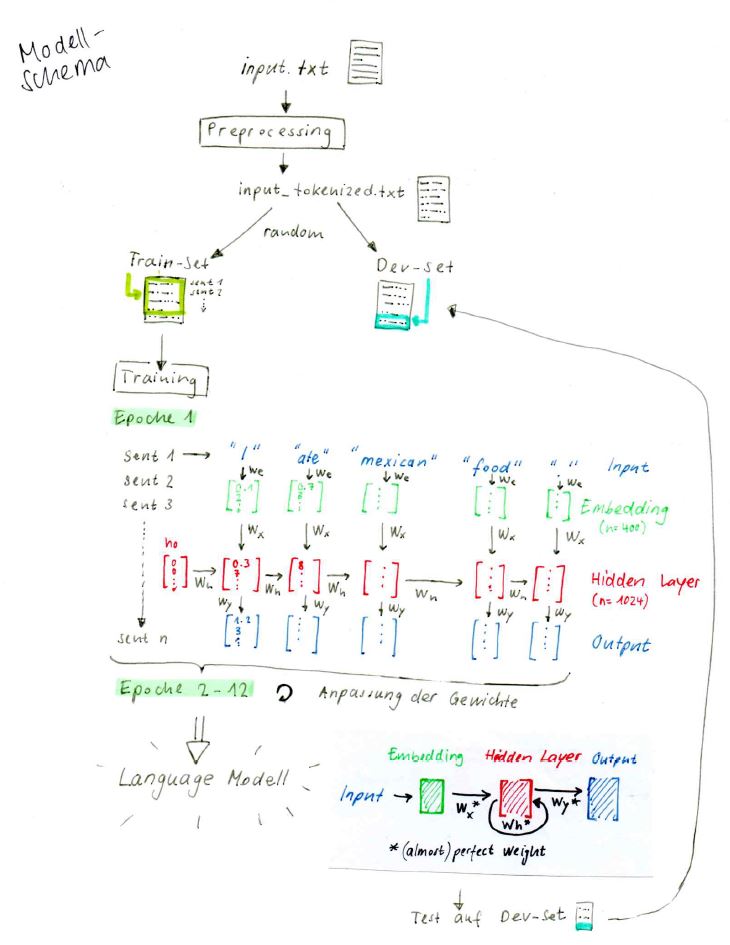 Modell-
schema
input.txt
Preprocessing
input_tokenized.txt
random
Train-set
sent 1
sent 2
Dev-set
Training
Epoche 1
sent 1 "I" "ate" "mexican" "food" "." Input
We We We We We
sent 2
sent 3
0.1 0.7
Embedding
(n=400)
Wx Wx Wx Wx Wx
h0
0 0 0.3 8
7
Wh Wh Wh Wh Wh
Hidden Layer
(n=1024)
Wy Wy Wy Wy Wy
1.2
3
Output
sent n
Epoche 2-12 Anpassung der Gewichte
Language Modell
Embedding Hidden Layer Output
Input
Wx* Wh* Wy*
*(almost) perfect weight
Test auf Dev-Set